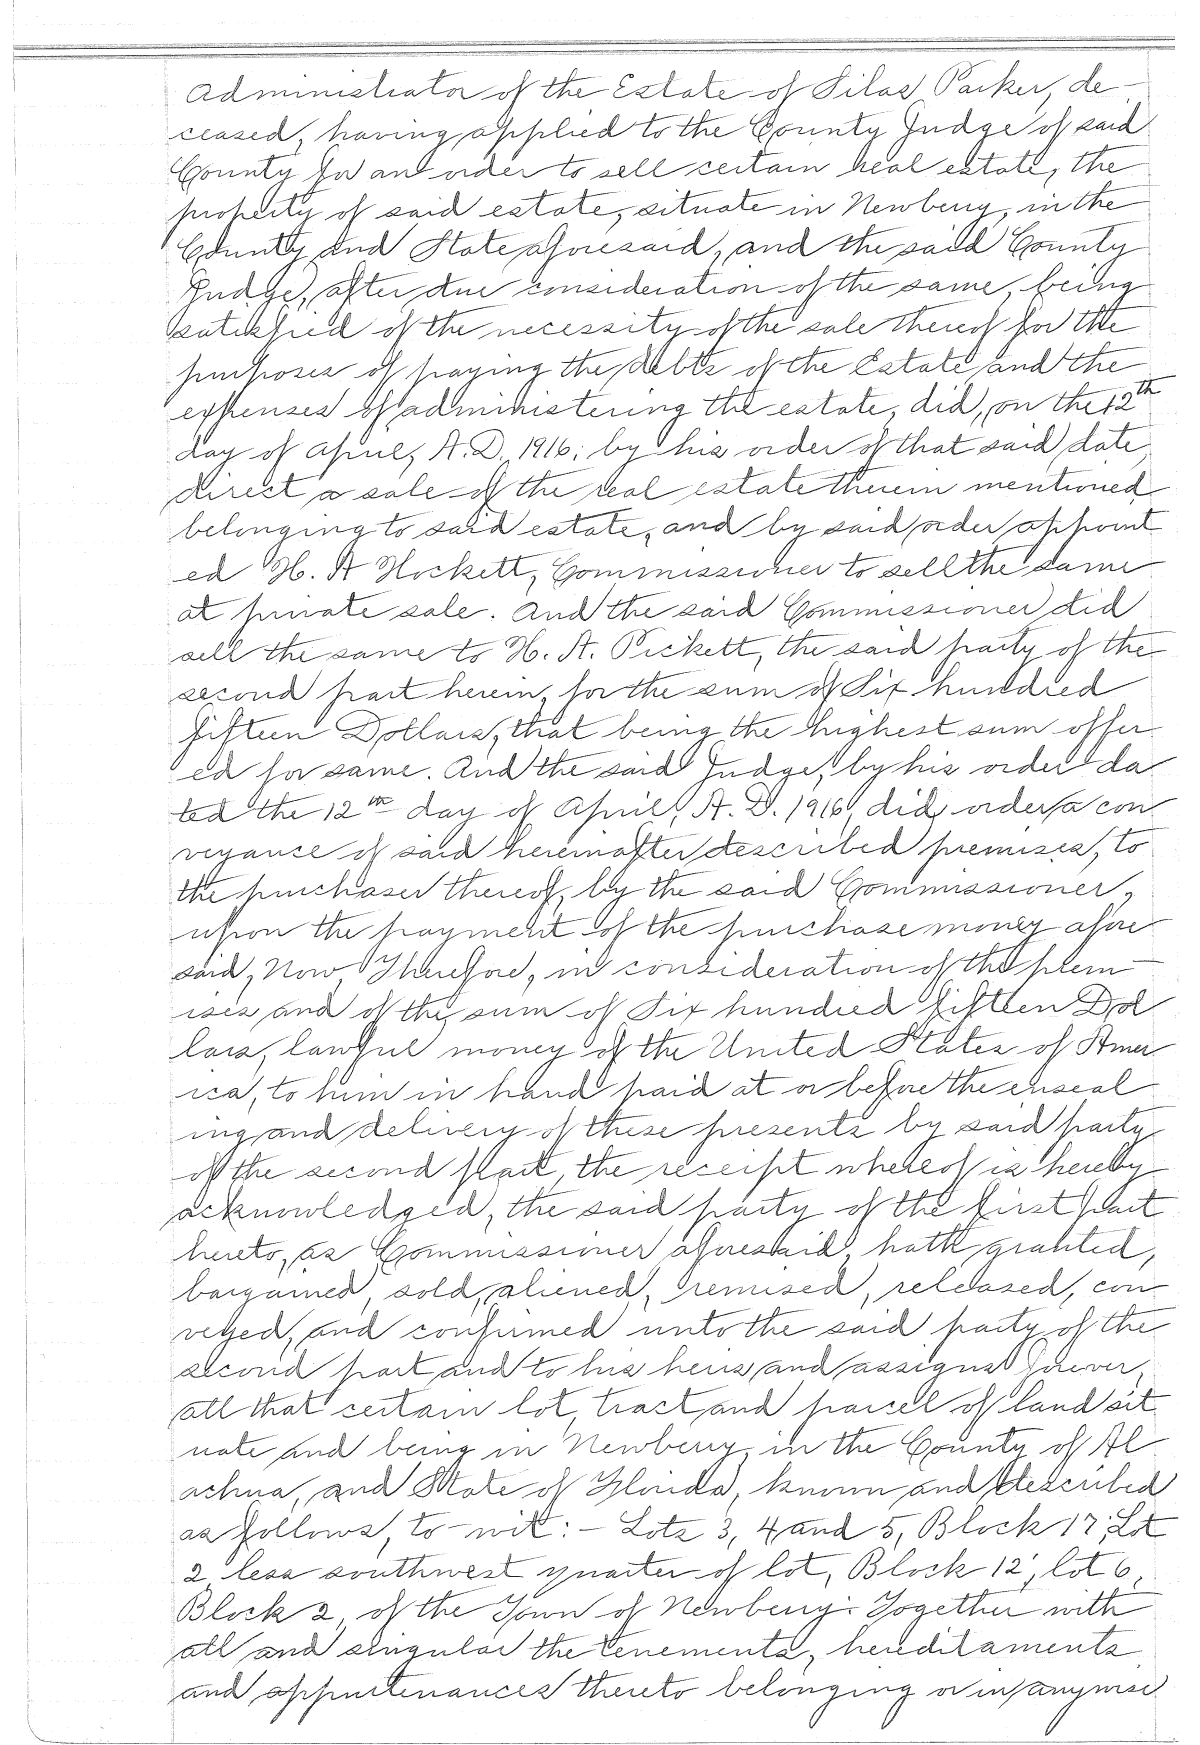 Administrator of the Estate of Silas Parker, de-
ceased, having applied to the County Judge of said
County for an order to sell certain real estate, the
property of said estate, situate in Newberry, in the
County and State aforesaid, and the said County
Judge, after due consideration of the same, being
satisfied of the necessity of the sale thereof for the
purposes of paying the debts of the Estate and the
expenses of administering the estate, did, on the 12th
day of April, A.D. 1916, by his order of that said date,
direct a sale of the real estate therein mentioned
belonging to said estate, and by said order appoint
ed H. A Hockett, Commissioner to sell the same
at private sale. And the said Commissioner did
sell the same to H. A. Pickett, the said party of the
second part herein, for the sum of Six hundred
fifteen Dollars, that being the highest sum offer
ed for same. And the said Judge, by his order da
ted the 12th day of April, A. D. 1916, did, order a con
veyance of said hereinafter described premises, to
the purchaser thereof, by the said Commissioner,
upon the payment of the purchase money afore
said, Now, Therefore, in consideration of the prem-
ises and of the sum of Six hundred fifteen Dol
lars, lawful money of the United States of Amer
ica, to him in hand paid at or before the enseal
ing and delivery of these presents by said party
of the second part, the receipt whereof is hereby
acknowledged, the said party of the first part
hereto, as Commissioner aforesaid, hath granted,
bargained, sold, aliened, remised, released, con
veyed, and confirmed unto the said party of the
second part and to his heirs and assigns forever,
all that certain lot, tract and parcel of land sit
uate and being in Newberry, in the County of Al
achua, and State of Florida, known and described
as follows, to-wit:- Lots 3, 4 and 5, Block 17; Lot
2, less southwest quarter of lot, Block 12; lot 6,
Block 2, of the Town of Newberry. Together with
all and singular the tenements, hereditaments
and appurtenances thereto belonging or in anywise